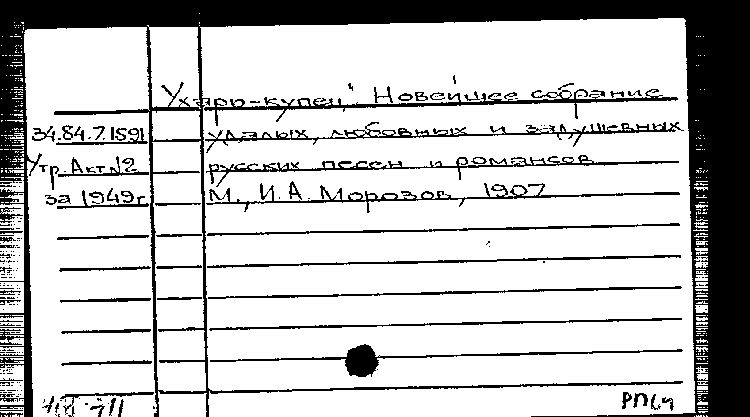 Ухарь-купец. Новейшее собрание
34.84.7.1591 удалых, любовных и задушевных
Утр. Акт №2 русских песен и романсов
за 1949г. М., И.А. Морозов, 1907